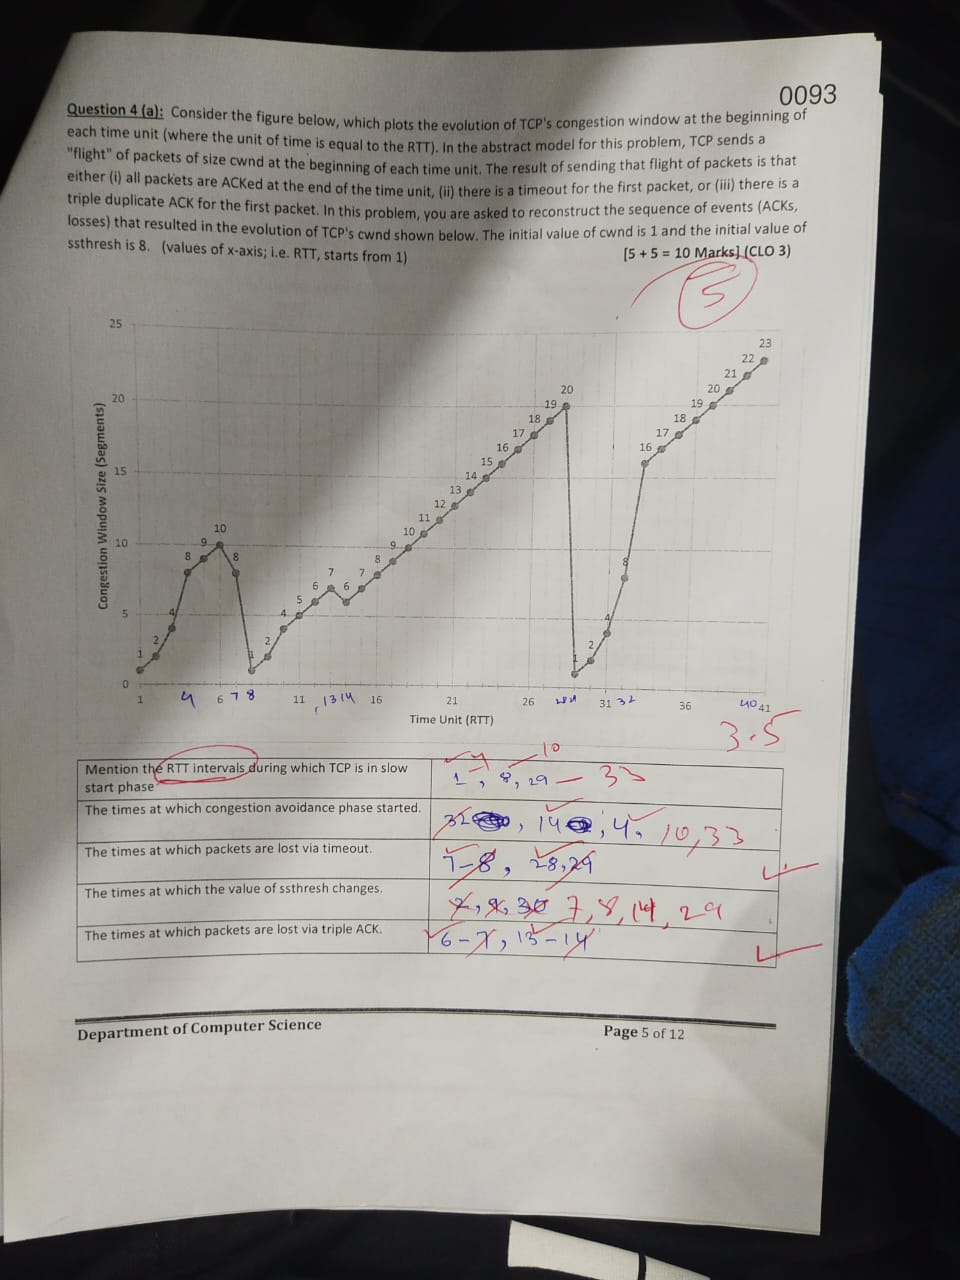 0093
Question 4 (a): Consider the figure below, which plots the evolution of TCP's congestion window at the beginning of
each time unit (where the unit of time is equal to the RTT). In the abstract model for this problem, TCP sends a
"flight" of packets of size cwnd at the beginning of each time unit. The result of sending that flight of packets is that
either (i) all packets are ACKed at the end of the time unit, (ii) there is a timeout for the first packet, or (iii) there is a
triple duplicate ACK for the first packet. In this problem, you are asked to reconstruct the sequence of events (ACKs,
losses) that resulted in the evolution of TCP's cwnd shown below. The initial value of cwnd is 1 and the initial value of
ssthresh is 8. (values of x-axis; i.e. RTT, starts from 1)
[5 + 5 = 10 Marks] (CLO 3)
5
Congestion Window Size (Segments)
25
20
15
10
5
0
1 2 4 8 9 10 8 1 2 4 5 6 7 6 7 8 9 10 11 12 13 14 15 16 17 18 19 20 1 2 4 8 16 17 18 19 20 21 22 23
1 4 6 7 8 11 13 14 16 21 26 31 32 36 40 41
Time Unit (RTT)
3.5
Mention the RTT intervals during which TCP is in slow
start phase
4 10
1, 8, 29 – 33
The times at which congestion avoidance phase started.
32, 14, 4, 10,33
The times at which packets are lost via timeout.
7-8, 28,29
The times at which the value of ssthresh changes.
30 7,8,14,29
The times at which packets are lost via triple ACK.
6-7, 13-14
Department of Computer Science
Page 5 of 12